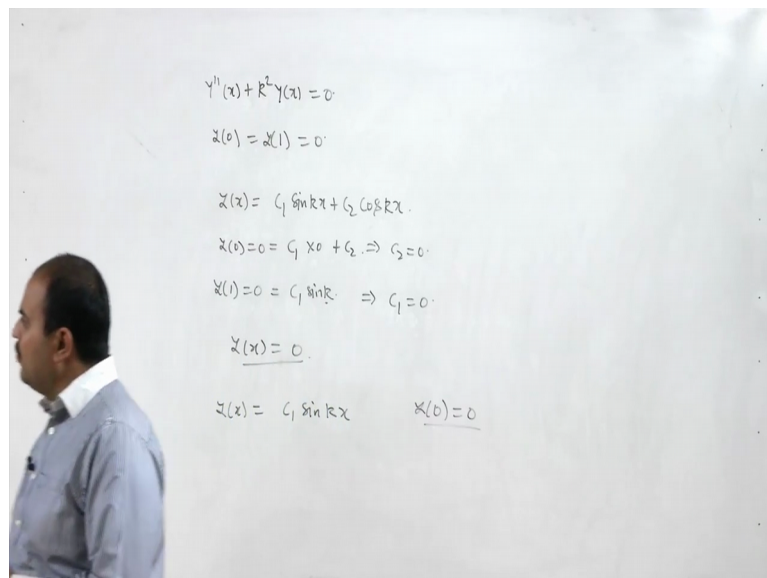 y''(x) + k² y(x) = 0.
y(0) = y(1) = 0.
y(x) = C₁ sin kx + C₂ cos kx.
y(0) = 0 = C₁ × 0 + C₂ ⇒ C₂ = 0.
y(1) = 0 = C₁ sin k. ⇒ C₁ = 0.
y(x) = 0.
y(x) = C₁ sin kx y(0) = 0